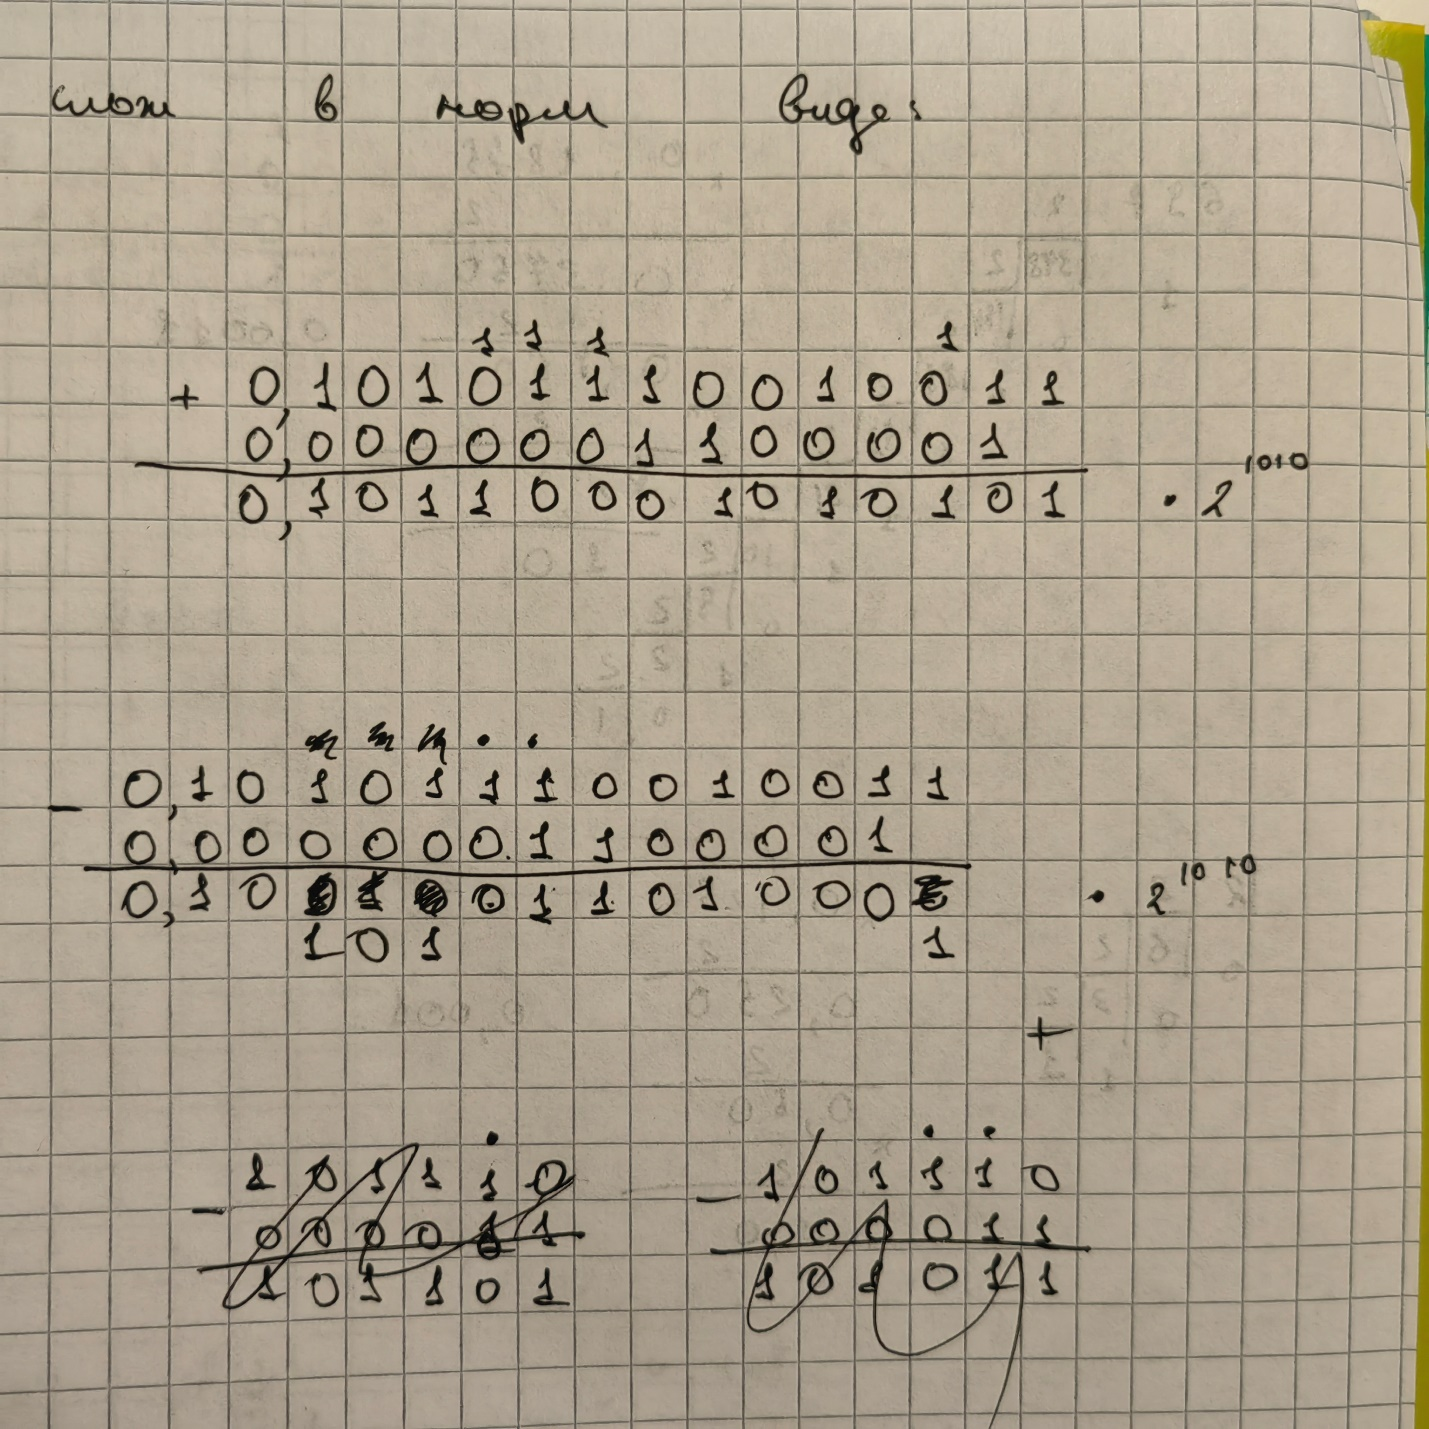 слож в норм виде:
1 1 1 1
+ 0,101011110010011
0,0000001100001
0,10110001010101 · 2^1010
- 0,10101110010011
0,0000001100001
0,10 0110100 0 · 2^1010
101 1
+
- 101110 - 101110
000011 000011
101101 101011